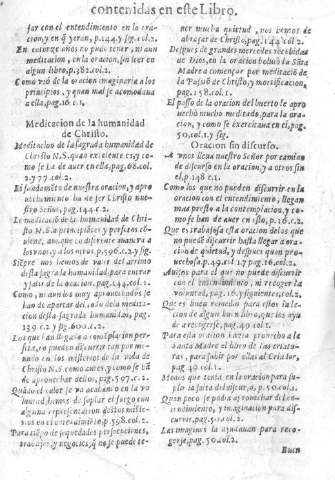 contenidas en este Libro.
jar con el entendimiento en la ora-
cion, y en q̃ yeran, p. 144. y sig. c. 2.
En catorze años no pudo tener, ni aun
meditacion, en la oracion, sin leer en
algun libro, p. 382. col. 2.
principios, y quan mal se acomodaua
a ella, pag. 16 c. 1.
Meditacion de la humanidad
de Christo.
Meditacion de la sagrada humanidad de
Christo N. S. quan excelente es, y co-
mo se ha de auer en ella, pag. 68. col.
2. y 77. col. 2.
El fundamẽto de nuestra oracion, y apro
uechamiento ha de ser Christo nue-
stro Señor, pag. 144. c. 2.
La meditacion de la humanidad de Chri-
sto N. S. a principiãtes y perfectos
los vnos, y a los otros
Siẽpre nos hemos de valer del arrimo
desta sagrada humanidad, para entrar
y salir de la oracion. pag. 144. col. 1.
Como, ni aun los muy aprouechados se
han de apartar del todo de la medita-
cion desta sagrada humanidad, pag.
139. c. 2. y sig. 600. c. 2.
Los que han llegado a contẽplacion per-
fecta, no pueden discurrir tan por me-
nudo en los misterios de la vida de
Christo N. S. como antes, y como se hã
de aprouechar dellos, pag. 597. c. 2.
Quando el calor se va acabando en la vo
luntad, hemos de soplar el fuego con
alguna representacion destos miste-
rios
Para tiẽpo de sequedades, persecuciones,
trabajos, y negocios, q̃ no se puede te-
ner mucha quietud, nos hemos de
abraçar de Christo, pag. 144. col. 2.
Despues de grandes mercedes recebidas
de Dios, en la oracion boluio la Sãta
Madre a començar por meditaciõ de
la Passiõ de Christo, y mortificacion,
pag. 158. col. 1.
El passo de la oracion del huerto le apro
uechò mucho meditado, para la ora-
cion, y como se exercitaua en el, pag.
50. col. 1. y sig.
Oracion sin discurso.
A vnos lleua nuestro Señor por camino
de discurso en la oracion, y a otros sin
el, p. 148. c. 1.
Como los que no pueden discurrir en la
oracion con el entendimiento, llegan
mas presto a la contemplacion, y co-
mo se han de auer en esto, p. 16. c. 2.
Que es trabajosa esta oracion de los que
no puedẽ discurrir hasta llegar a ora-
ciõ de quietud, y despues quan pro-
uechosa
Auisos para el que no puede discurrir
con el entendimiento, ni recoger la
voluntad, pag. 16. y siguiente, col. 2.
Que es buen remedio para estos la le-
cion de algun buen libro, que los ayu-
de a recogerse, pag. 49. col. 1.
Para esta oracion hazia prouecho a la
Santa Madre el libro de las criatu-
ras, para subir por ellas al Criador,
pag. 49. col. 1.
Modos que tenia en la oracion para su-
plir la falta del discurso, p. 50. col. 1.
Quan poco se podia aprouechar del en-
tendimiento, y imaginacion para dis-
currir, pag. 50. col. 2.
Las imagines la ayudauan para reco-
gerse, pag. 50. col. 2.
Buen